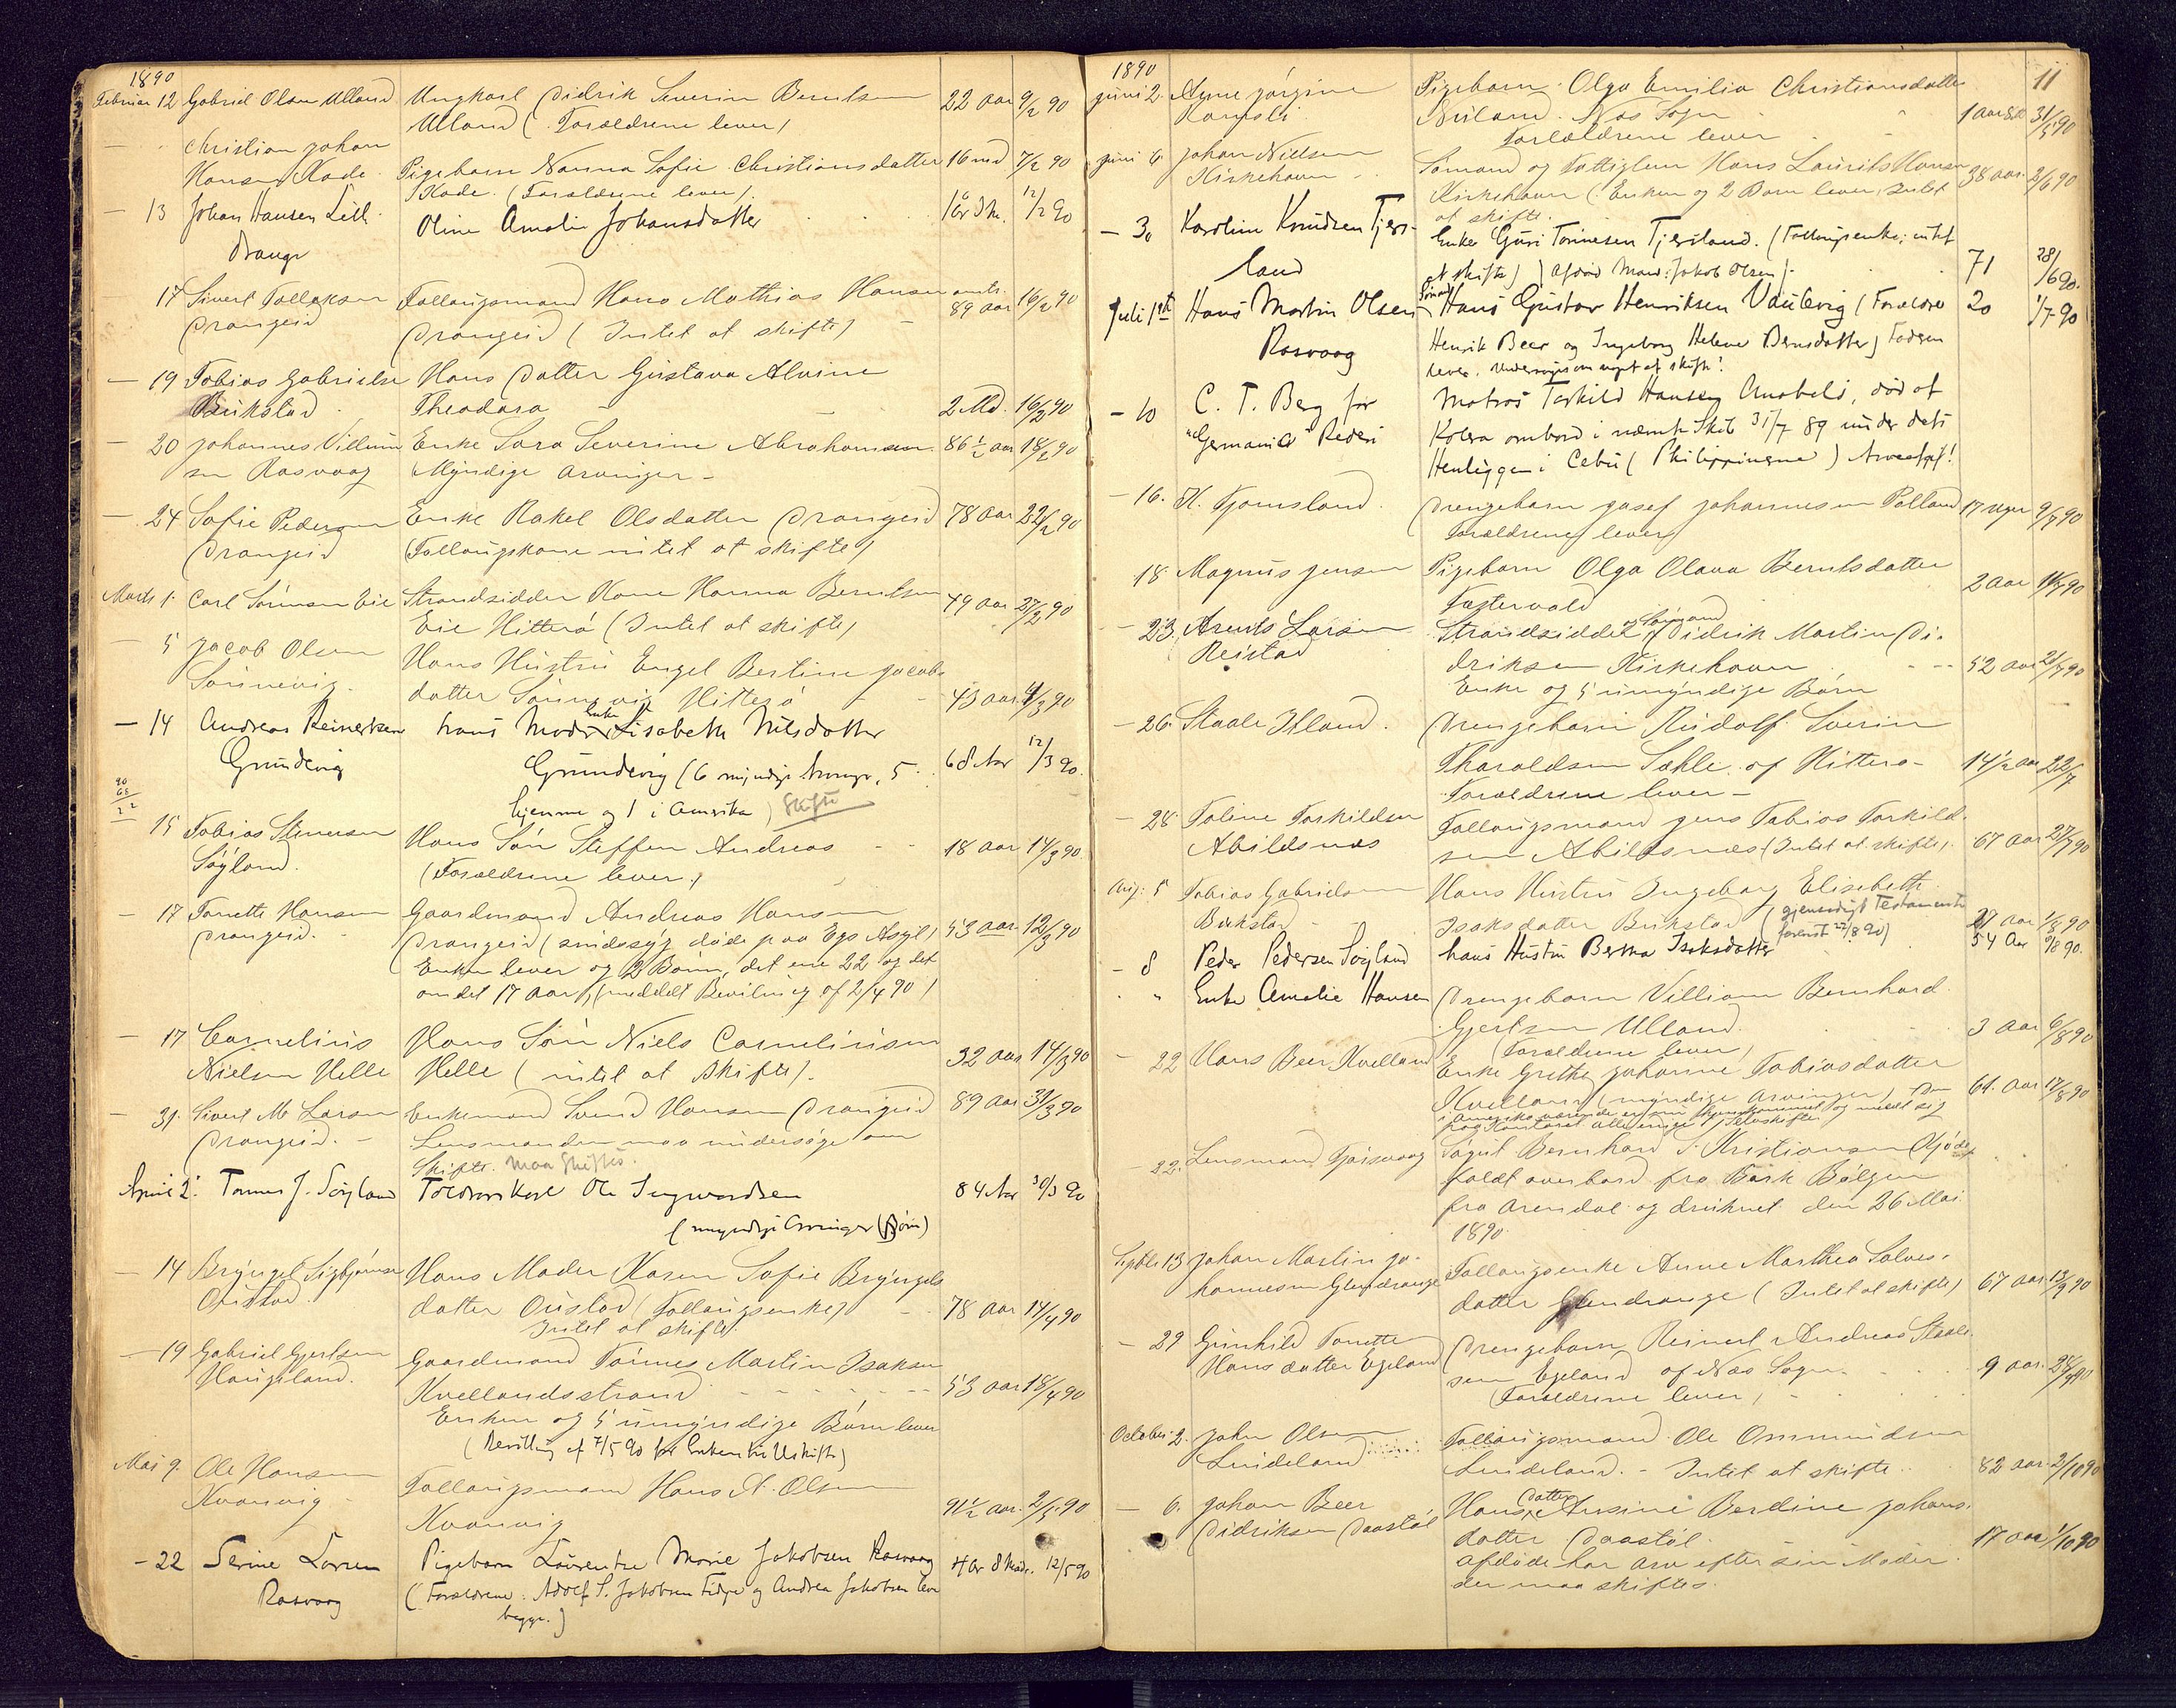 1890
Februar 12 Gabriel Olsen Ulland Ungkarl Didrik Severin Berntsen 22 aar 9/2 90
Ulland (Forældrene lever)
Christian Johan
Hansen Kade. Pigebarn Nanna Sofie Christiansdatter 16 md 7/2 90
Kade. (Forældrene lever).
— 13 Johan Hansen Lill- Oline Amalie Johansdatter 12/2 90
drange
17 Sivert Tollaksen Follaugsmand Hans Mathias Hansen 89 aar 16/2 90
Drangeid Drangeid (Intet at skifte)
— 19 Tobias Gabrielsen Hans Datter Gustava Alvine
Birkstad. Theodora — 2 Md. 16/2 90
— 20 Johannes Villum- Enke Sara Severine Abrahamsen. 86 1/2 aar 18/2 90
sen Rasvaag Myndige Arvinger —
— 24 Sofie Pedersen Enke Rakel Olsdatter Drangeid 78 aar 22/2 90
Drangeid (Follaugskone intet at skifte)
Marts 1. Carl Sørensen Eie Strandsidder Kone Hanna Berntsen 49 aar 27/2 90
Eie Hitterø (Intet at skifte)
— 5 Jacob Olsen Hans Hustru Engel Bertine Jacobs-
Sønnevig. datter Sønnevig Hitterø 43 aar 4/3 90
— 14 Andreas Reinertsen hans Moder Enke Lisabeth Nilsdatter
Grundevig Grundevig (6 myndige Arvinge, 5 68 Aar 12/3 90.
hjemme og 1 i Amerika) Skifte
90
68
22
15 Tobias Steinersen Hans Søn Steffen Andreas — 18 aar 14/3 90
Søyland. (Forældrene lever)
— 17 Tonette Hansen Gaardmand Andreas Hansen
Drangeid. Drangeid (sindssyg døde paa Egs Asyl) 53 aar 12/3 90
Enken lever og 2 Børn, det ene 22 og det
andet 17 Aar, (meddelt Bevilling af 2/4 90)
— 17 Cornelius Hans Søn Niels Corneliusen
Nielsen Helle Helle (intet at skifte). 32 aar 14/3 90
— 31. Sivert M. Larsen Enkemand Svend Hansen Drangeid 89 aar 31/3 90
Drangeid. — Lensmanden maa undersøge om
Skifte. maa skiftes.
April 2. Tønnes J. Søyland Føderaadskarl Ole Ingvardsen 84 Aar 30/3 90
(myndige Arvinger (Børn)
— 14 Bryngel Sigbjørnsen Hans Moder Karen Sofie Bryngels-
Oustad. datter Oustad (Follaugsenke) 78 aar 14/4 90
Intet at skifte.
— 19 Gabriel Gjertsen Gaardmand Tønnes Martin Isaksen
Haugeland. Kvellandsstrand 53 aar 18/4 90
Enken og 5 umyndige Børn lever
(Bevilling af 7/5 90 for Enken til Uskifte)
Mai 9. Ole Hansen Follaugsmand Hans A. Olsen
Kvanvig Kvanvig 91 1/2 aar. 2/5 90
— 22 Serine Larsen Pigebarn Laurentze Marie Jakobsen Rasvaag 4 Ar 8 Mdr. 12/5 90
Rasvaag (Forældrene: Adolf S. Jakobsen Fidje og Andrea Jakobsen lever
begge.)
1890 11
Juni 2. Anne Jørgine Pigebarn Olga Emilia Christiansdatter
Ramsli. Nuland. Næs Sogn 31/5 90
Forældrene lever
Juni 6. Johan Nielsen Sømand og Fattiglem Hans Laurits Hansen
Kirkehavn Kirkehavn (Enken og 2 Børn lever, Intet 38 aar 2/6 90
at skifte.
— 30 Karoline Knudsen Tjers- Enke Guri Tønnesen Tjersland. (Follaugsenke; intet
land at skifte) (afdød Mand: Jakob Olsen). 71 28/6 90.
Juli 1ste Hans Martin Olsen Sømand Hans Gustav Henriksen Vaulevig (Forældre 20 1/7 90
Rasvaag Henrik Beer og Ingeborg Helene Berntsdatter) Faderen
lever. Undersøges om noget at skifte!
— 10 C. T. Berg for Matros Terkild Hansen Anabeløe, død af
"Germanica" Rederi Kolera ombord i nævnte Skib 31/7 89 under dets
Henliggen i Cebu (Philippinerne)
— 16. K. Tjomsland. Drengebarn Josef Johannesen Rolland 17 Uger 9/7 90
Forældrene lever
18. Magnus Jensen Pigebarn Olga Olava Berntsdatter
Fastervold 2 aar
— 23. Arents Larsen Strandsidder og Sømand Didrik Martin Di-
Reistad driksen Kirkehavn 52 aar 21/7 90
Enke og 5 umyndige Børn
— 26. Staale Ystad. Drengebarn Rudolf Severin
Tharaldsen Sæhle af Hitterø — 14 1/2 aar 22/7
Forældrene lever —
— 28. Toline Torkildsen Follaugsmand Jens Tobias Torkild-
Abildsnæs sen Abildsnæs (Intet at skifte). 67 aar 27/7 90
Aug: 5 Tobias Gabrielsen Hans Hustru Ingeborg Elisabeth
Birkstad — Isaksdatter Birkstad (gjensidigt Testamente 27 aar 1/8 90
forevist 22/8 90)
— 8 Peder Pedersen Søyland hans Hustru Berntha Isaksdatter 54 Aar 9/8 90.
" Enke Amalie Hansen Drengebarn Villiam Bernhard
Gjertsen Ulland. 3 aar 6/8 90
(Forældrene lever)
— 22 Hans Beer Kvelland Enke Grethe Johanne Tobiasdatter
Kvelland (myndige Arvinger) 64. aar 17/8 90
— 22. Lensmand Tjørsvaag Søgut Bernhard S. Kristiansen
faldt overbord fra Bark Bølgen
fra Arendal og druknet den 26 Mai
1890.
Septbr 13 Johan Martin Jo- Follaugsenke Anne Marthea Salves-
hannesen Glendrange datter Glendrange (Intet at skifte) 67 aar 12/9 90
— 29 Gunhild Tonette Drengebarn Reinert Andreas Staale-
Hansdatter Egeland sen Egeland af Næs Sogn 9 aar 28/9 90
(Forældrene lever) —
October 2. John Olsen Follaugsmand Ole Ommundsen
Lindeland Lindeland. — Intet at skifte 82 aar 2/10 90
— 6. Johan Beer Hans Datter Ansine Berdine Johans-
Didriksen Daastøl datter Daastøl. 17 aar 1/10 90
Afdøde har Arv efter sin Moder
der maa skiftes.